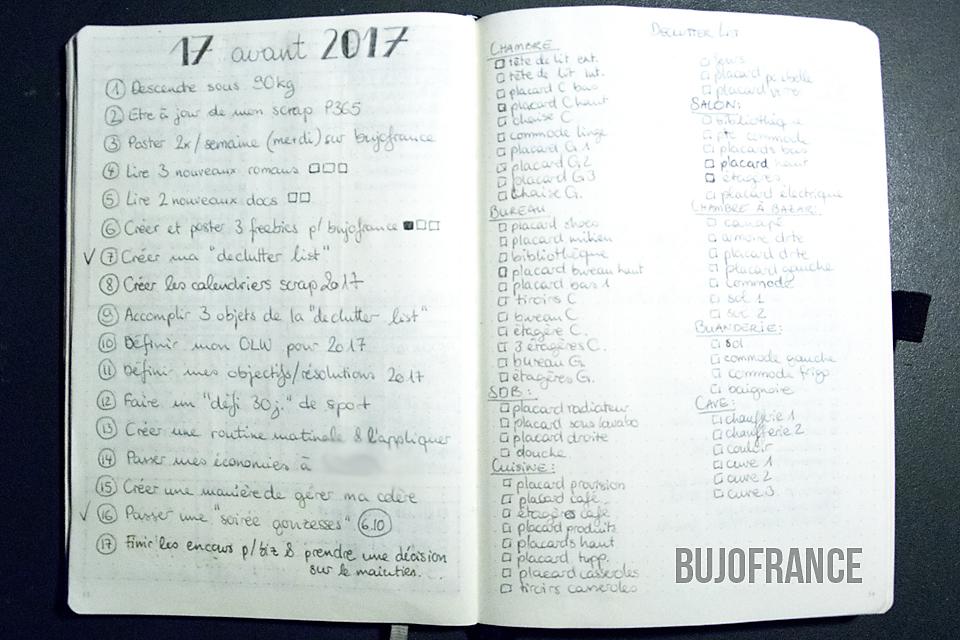 17 avant 2017
1 Descendre sous 90kg
2 Etre à jour de mon scrap P365
3 Poster 2x/semaine (merdi) sur bujofrance
4 Lire 3 nouveaux romans □□□
5 Lire 2 nouveaux docs □□
6 Créer et poster 3 freebies p/ bujofrance ■□□
✓ 7 Créer ma "declutter list"
8 Créer les calendriers scrap 2017
9 Accomplir 3 objets de la "declutter list"
10 Définir mon OLW pour 2017
11 Définir mes objectifs/résolutions 2017
12 Faire un "défi 30j." de sport
13 Créer une routine matinale & l'appliquer
14 Passer mes économies à
15 Créer une manière de gérer ma colère
✓ 16 Passer une "soirée gonzesses" 6.10
17 Finir les encours p/biz & prendre une décision
sur le maintien...
DECLUTTER LIST
CHAMBRE
□ tête de lit ext.
□ tête de lit int.
□ placard C bas
□ placard C haut
□ chaise C
□ commode linge
□ placard G1
□ placard G2
□ placard G3
□ chaise G.
BUREAU
□ placard choco
□ placard milieu
□ bibliothèque
□ placard bureau haut
□ placard bas 1
□ tiroirs C
□ bureau C
□ étagère C.
□ 3 étagères C.
□ bureau G.
□ étagères G.
SDB:
□ placard radiateur
□ placard sous lavabo
□ placard droite
□ douche
CUISINE:
□ placard provision
□ placard café
□ étagères café
□ placard produits
□ placards haut
□ placard tupp.
□ placard casseroles
□ tiroirs casseroles
□ placard poubelle
□ placard
SALON:
□ bibliothèque
□ pte commode
□ placards bas
□ placard haut
□ étagères
□ placard électrique
CHAMBRE À BAZAR:
□ canapé
□ armoire drte
□ placard drte
□ placard gauche
□ commode
□ sol 1
□ sol 2
BUANDERIE:
□ sol
□ commode gauche
□ commode frigo
□ baignoire
CAVE:
□ chaufferie 1
□ chaufferie 2
□ couloir
□ cave 1
□ cave 2
□ cave 3
BUJOFRANCE